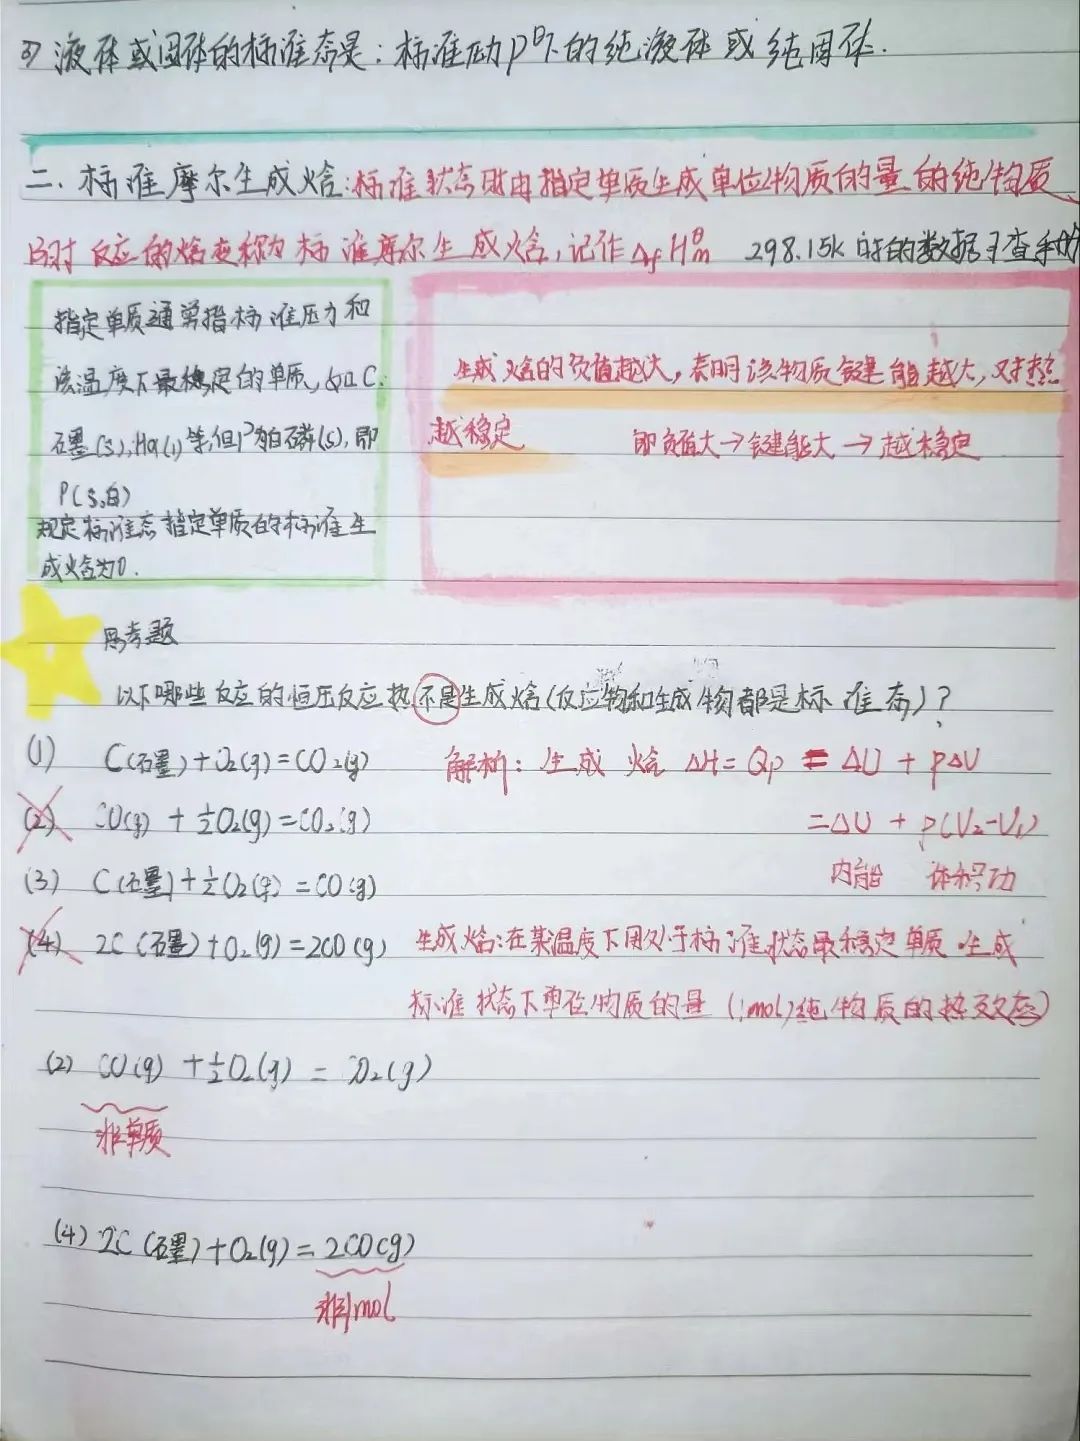 3) 液体或固体的标准态是：标准压力p^θ下的纯液体或纯固体.
二、标准摩尔生成焓：标准状态时由指定单质生成单位物质的量的纯物质
时反应的焓变称为标准摩尔生成焓，记作ΔfHm^θ 298.15k时的数据可查手册
指定单质通常指标准压力和
该温度下最稳定的单质，如C：
石墨(s)，Hg(l)等，但P为白磷(s)，即
P(s,白)
规定标准态指定单质的标准生
成焓为0.
生成焓的负值越大，表明该物质键能越大，对热
越稳定 即负值大→键能大→越稳定
思考题
以下哪些反应的恒压反应热不是生成焓（反应物和生成物都是标准态）？
(1) C(石墨)+O₂(g)=CO₂(g) 解析：生成焓 ΔH=Qp=ΔU+pΔV
(2) CO(g)+½O₂(g)=CO₂(g) =ΔU+p(V₂-V₁)
(3) C(石墨)+½O₂(g)=CO(g) 内能 体积功
(4) 2C(石墨)+O₂(g)=2CO(g) 生成焓：在某温度下用处于标准状态最稳定单质生成
标准状态下单位物质的量(1mol)纯物质的热效应
(2) CO(g)+½O₂(g)=CO₂(g)
非单质
(4) 2C(石墨)+O₂(g)=2CO(g)
非1mol